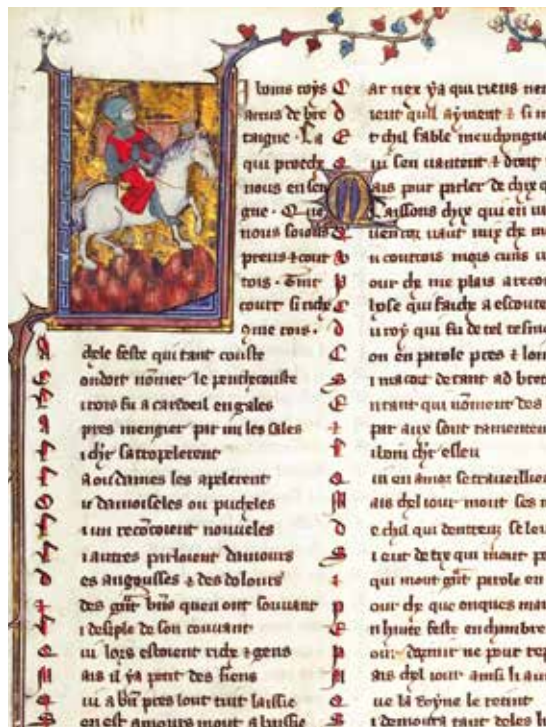 bons roys
artus de bre
taigne . La
qui proeche
nous ensen
gne . Que
nous soions
preus & cour
tois . Tint
court si riche
9me rois .
A chele feste qui tant couste
C ondoit nõmer le penthecouste
L i rois fu a cardoeil en gales
A pres mengier par mi les sales
L i chlr satropelerent
L a ou dames les apelerent
O u damoiseles ou pucheles
L i un recõtoient nouveles
L i autres parloient damours
D es angousses & des dolours
& des grãs biens quen ont souvant
L i desiple de son couvant
Q ui lors estoient riche & gens
M ais il ya petit des siens
Q ui a bñ pres lont tuit laissie
S en est amours mout abaissie
C ar nex ya qui riens nen
D ient quil ayment & si n
E t chil fable menchongne
sen vantent & droit
M ais pour parler de chix q
L aissons chix qui en
Q uencor vaut mix
courtois mors cuns vi
P our che me plais a recon
C hose qui faiche a escoute
D u roy qui fu de tel tesm
C on en parole pres & loin
S i macort de tant
qui nõment des
par aux sont ramenteu
Q ui en amor se travaillie
M ais del tout mout ses
D e chil qui dentreux se lev
S i eut de tex qui mout
& qui mout grãt parole en
P our che que onques mai
A si haute feste en chambre
P our dormir ne pour rep
M ais del tout ainsi li av
Q ue la royne le retint
S i demoura tant deles l